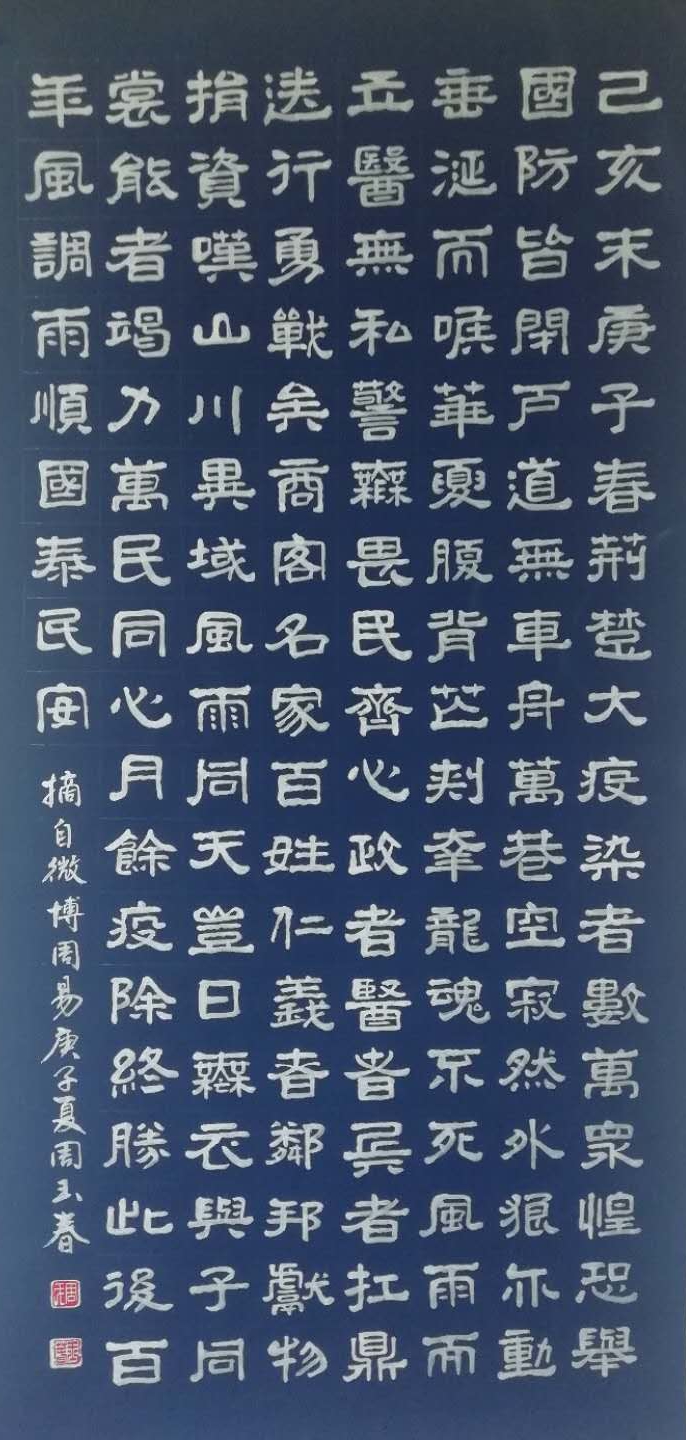 己亥末庚子春荊楚大疫染者數萬眾惶恐舉
國防皆閉戶道無車舟萬巷空寂然外狼亦動
垂涎而喉華夏腹背芒刺幸龍魂不死風雨而
立醫無私警無畏民齊心政者醫者兵者扛鼎
逆行勇戰矣商客名家百姓仁義者鄰邦獻物
捐資嘆山川異域風雨同天豈曰無衣與子同
裳能者竭力萬民同心月餘疫除終勝此後百
年風調雨順國泰民安
摘自微博周易庚子夏周玉春